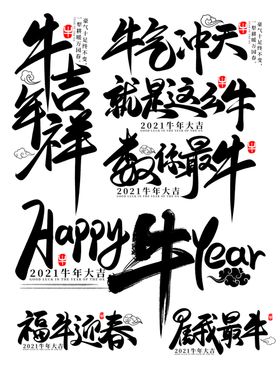 牛年吉祥
豪气十足终不变,
牛气冲天
豪气十足终不变,
就是这么牛
2021牛年大吉
GOOD LUCK IN THE YEAR OF THE OX
数你最牛
2021牛年大吉
Happy牛Year
2021牛年大吉
GOOD LUCK IN THE YEAR OF THE OX
福牛迎春
2021牛年大吉
属我最牛
2021牛年大吉